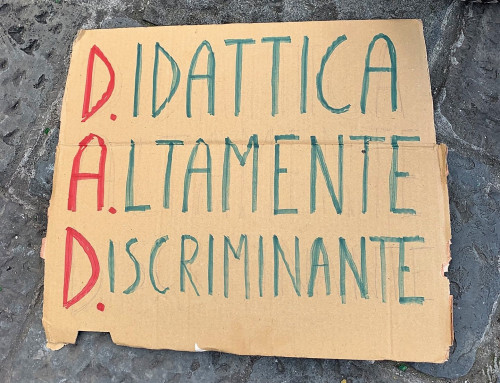 D.IDATTICA
A.LTAMENTE
D.ISCRIMINANTE